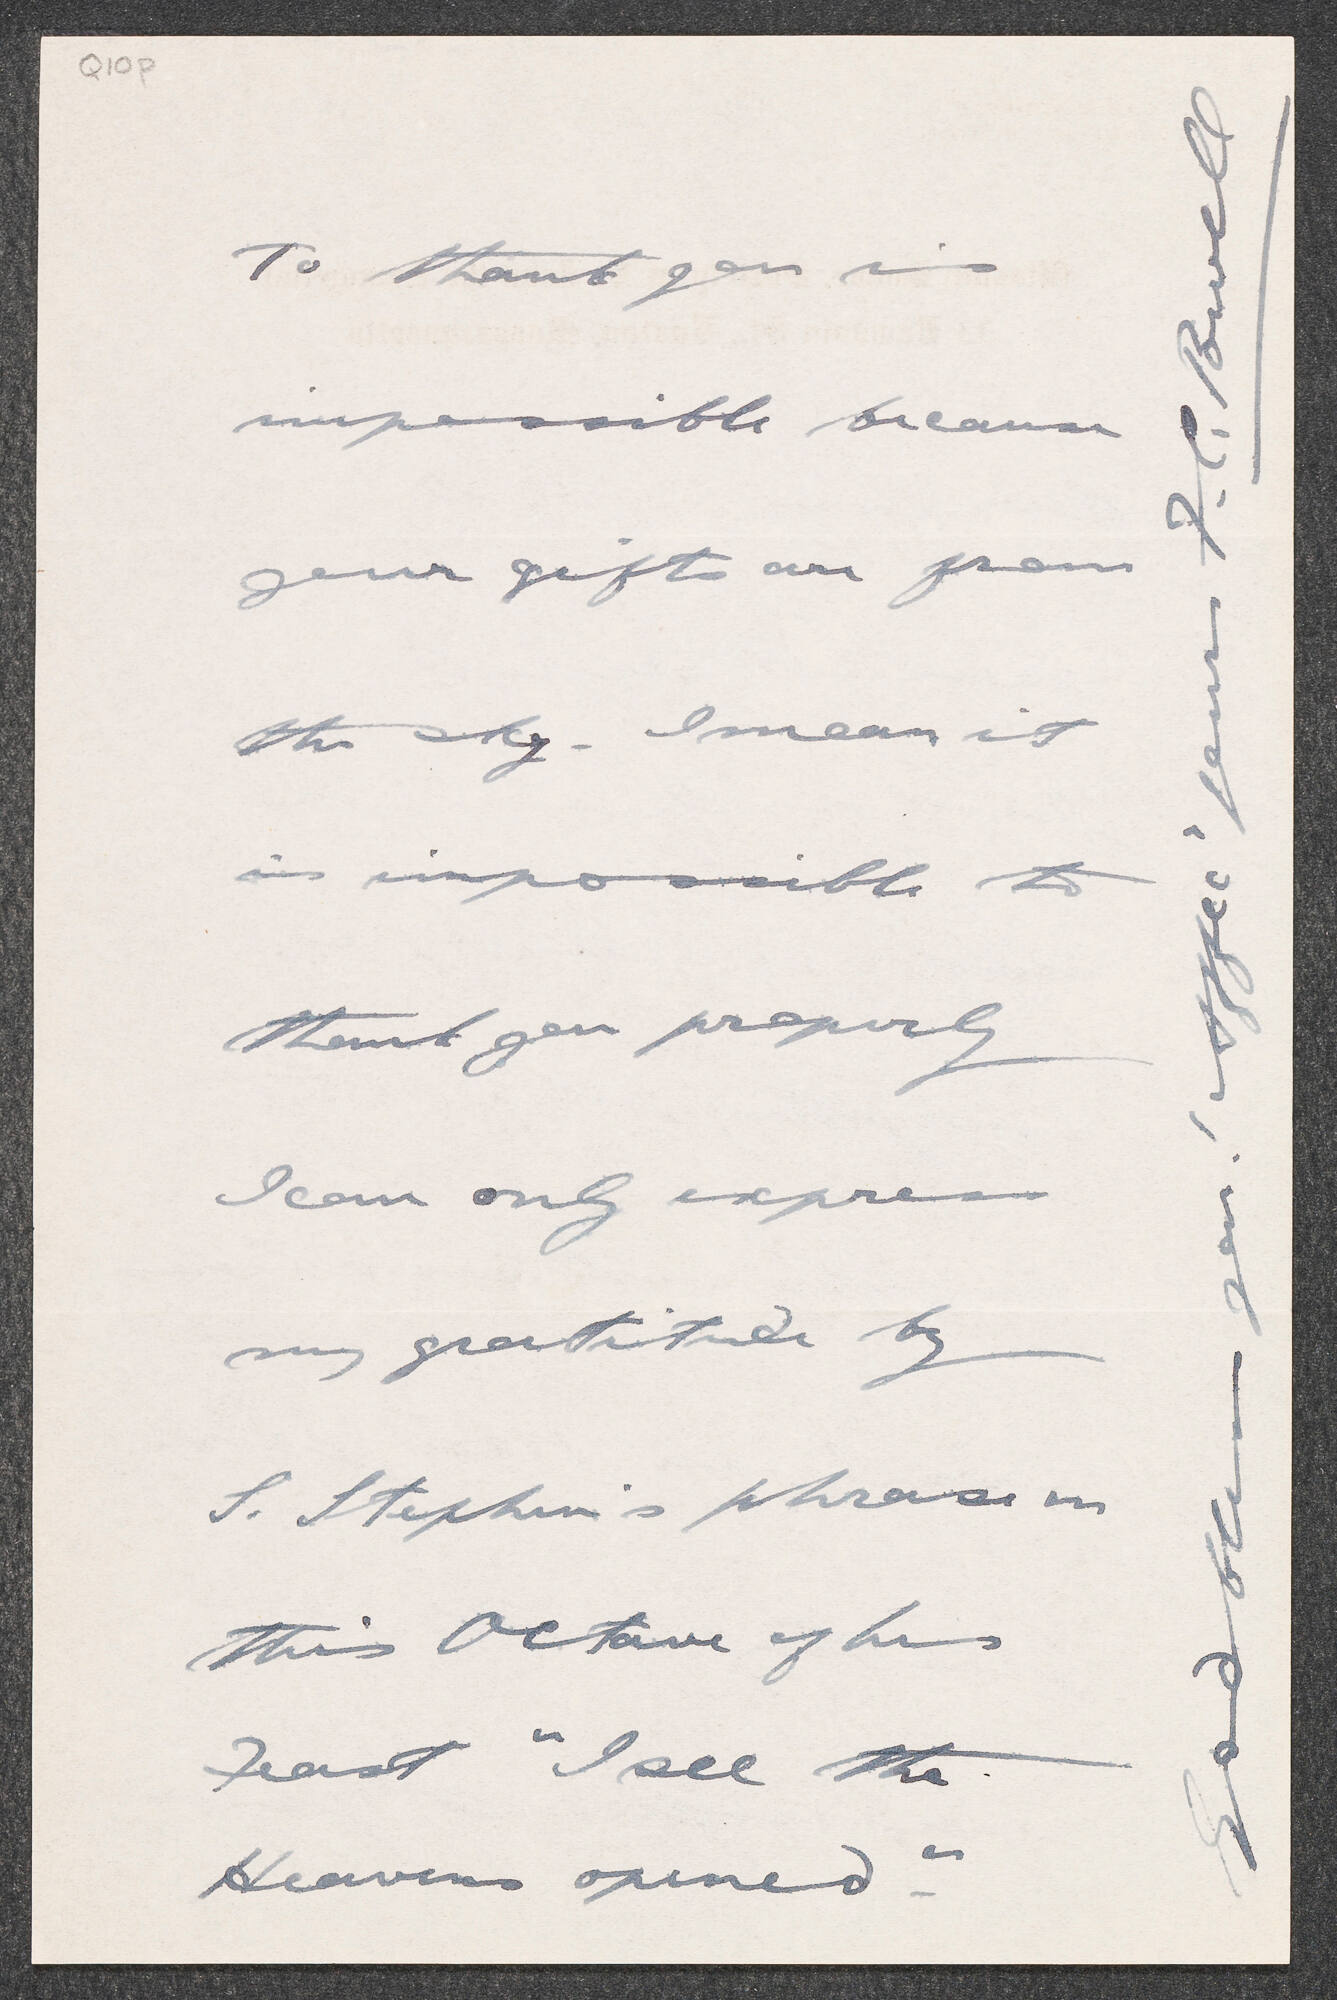 Q10P
To thank you is
impossible because
your gifts are from
the sky - I mean it
is impossible to
thank you properly
I can only express
my gratitude by
S. Stephen's phrase in
this Octave of his
Feast "I see the
Heavens opened"-
God bless you. 'affec' yours F.C. Powell